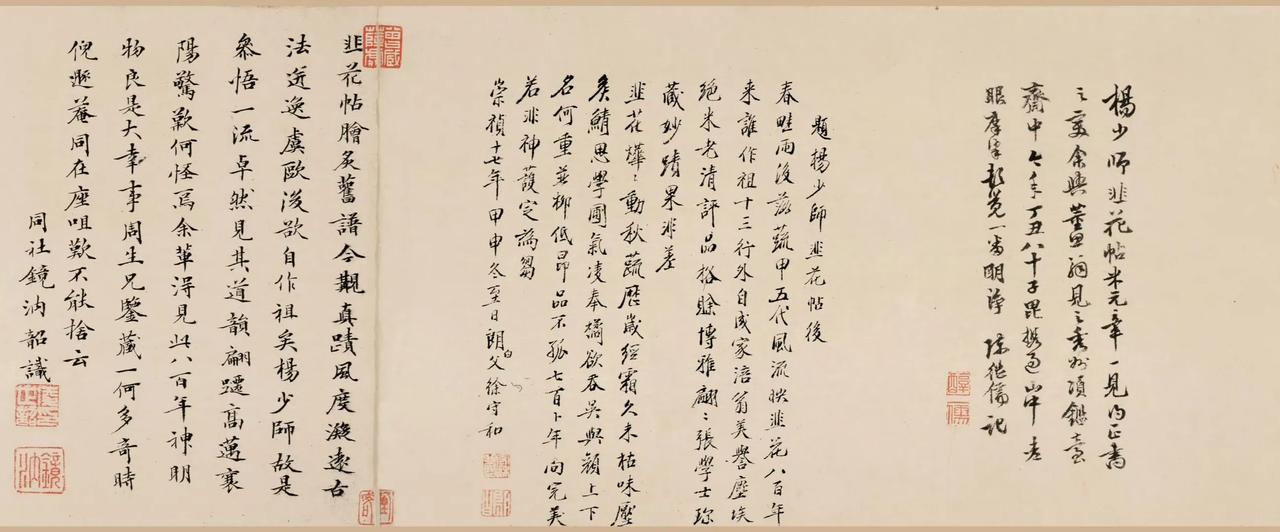 楊少師韭花帖米元章一見內正書
之 余與董思翁見之秀州項鑑臺
齋中今年丁丑八十子毘攜過山中老
眼摩挲 覺一番明淨 陳繼儒記
醇儒
題楊少師韭花帖後
春畦雨後 蔬甲五代風流映韭花八百年
來誰作祖十三行外自成家涪翁美譽塵埃
絕米老清評品格賒博雅翩〻張學士珎
藏妙蹟果非差
韭花燁〻動秋蔬歷歲經霜久未枯味壓
矦鯖思學圃氣凌奉橘欲吞吳與顏上下
名何重並柳低昂品不孤七百卜年向完美
若非神護定為芻
崇禎十七年甲申冬至日朗白父徐守和
韭花帖膾炙舊譜今觀真蹟風度凝遠古
法 逸虞歐後欲自作祖矣楊少師故是
叅悟一流卓然見其道韻翩躚高 襄
陽驚歎何怪焉余輩淂見此八百年神明
物良是大幸事周生兄鑒藏一何多奇時
倪遯菴同在座咀歎不能捨云
同社鏡汭韶識
鏡汭